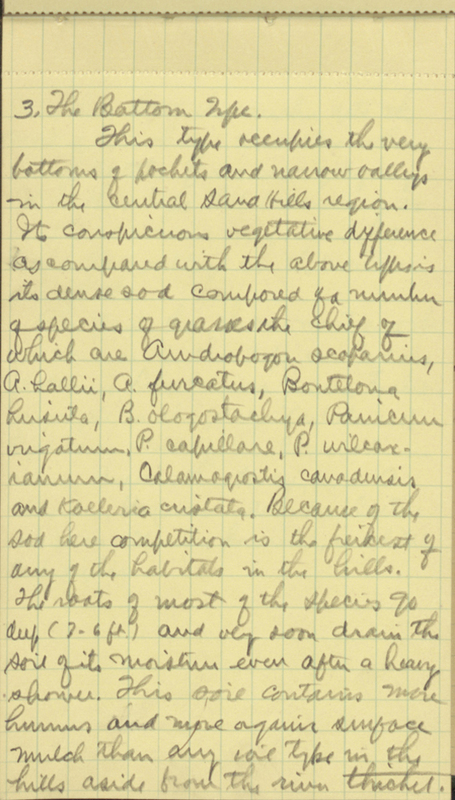 3. The Bottom Type.
This type occupies the very
bottoms of pockets and narrow valleys
in the Central Sand Hills region.
Its conspicuous vegetative difference
as compared with the above types is
its dense sod composed of a number
of species of grasses the chief of
which are Andropogon scoparius,
A. hallii, A. furcatus, Bouteloua
hirsuta, B. oligostachya, Panicum
virgatum, P. capillare, P. wilcox-
ianum, Calamagrostis canadensis
and Koeleria cristata. Because of the
sod here competition is the of
any of the habitats in the hills.
The roots of most of the species go
deep ( -6 ft.) and very soon drain the
soil of its moisture even after a heavy
shower. This soil contains more
humus and more organic surface
mulch than any soil type in the
hills aside from the river thicket.